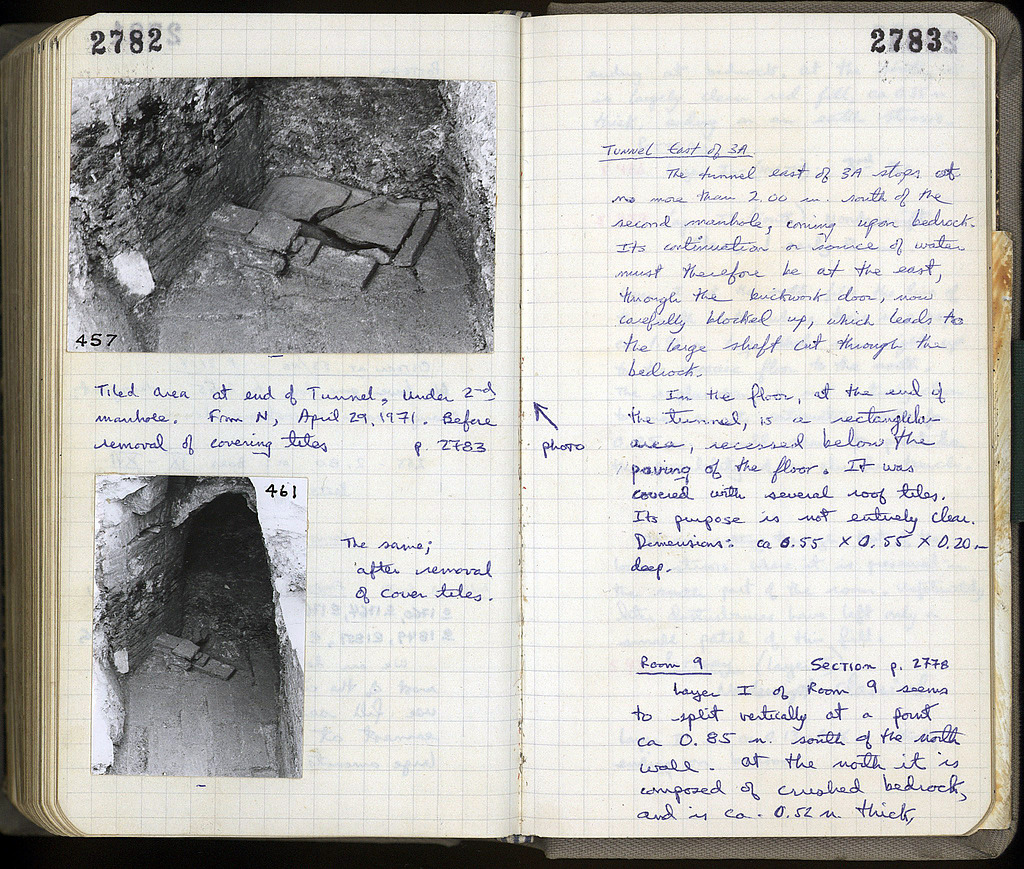 2782
457
Tiled area at end of Tunnel, under 2-d
manhole. From N, April 29, 1971. Before
removal of covering tiles p. 2783
461
The same;
after removal
of cover tiles.
2783
Tunnel East of 3A
The tunnel east of 3A stops at
no more than 2.00 m. south of the
second manhole, coming upon bedrock.
Its continuation or source of water
must therefore be at the east,
through the brickwork door, now
carefully blocked up, which leads to
the large shaft cut through the
bedrock.
In the floor, at the end of
the tunnel, is a rectangular
area, recessed below the
paving of the floor. It was
covered with several roof tiles.
Its purpose is not entirely clear.
Dimensions: ca 0.55 x 0.55 x 0.20
deep.
photo
Room 9 Section p. 2778
Layer I of Room 9 seems
to split vertically at a point
ca 0.85 m. south of the north
wall. At the north it is
composed of crushed bedrock,
and is ca. 0.52 m thick,